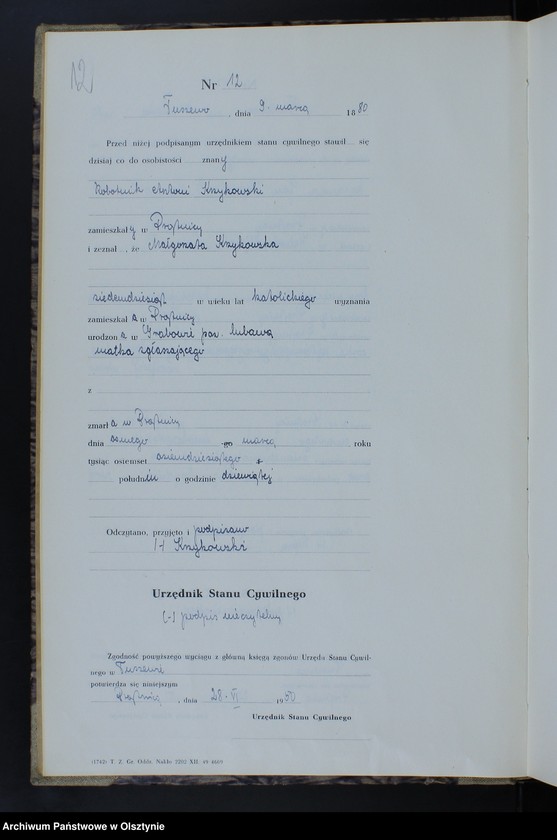 12
Nr 12
Tuszewo, dnia 9. marca 1880
Przed niżej podpisanym urzędnikiem stanu cywilnego stawił się
dzisiaj co do osobistości znany
Robotnik Antoni Krzykowski
zamieszkały w Prątnicy
i zeznał, że Małgorzata Krzykowska
siedemdziesiąt w wieku lat katolickiego wyznania
zamieszkała w Prątnicy
urodzona w Grabowie pow. lubawa
matka zgłaszającego
z
zmarła w Prątnicy
dnia ósmego -go marca roku
tysiąc osiemset osiemdziesiątego
południu o godzinie dziewiątej
Odczytano, przyjęto i podpisano
(-) Krzykowski
Urzędnik Stanu Cywilnego
(-) podpis nieczytelny
Zgodność powyższego wyciągu z główną księgą zgonów Urzędu Stanu Cywil-
nego w Tuszewie
potwierdza się niniejszym
Prątnica, dnia 28-VI 1950
Urzędnik Stanu Cywilnego
(1742) T. Z. Gr. Oddz. Nakło 2202 XII. 49 4669
Archiwum Państwowe w Olsztynie